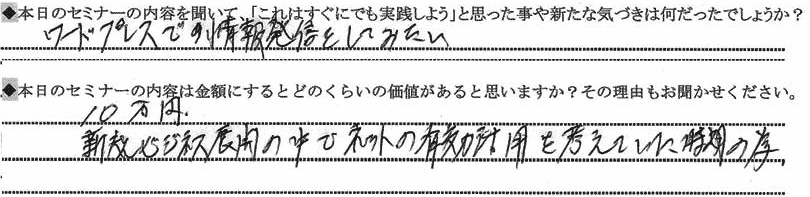 ◆本日のセミナーの内容を聞いて、「これはすぐにでも実践しよう」と思った事や新たな気づきは何だったでしょうか？
ワードプレスでの情報発信をしてみたい
◆本日のセミナーの内容は金額にするとどのくらいの価値があると思いますか？その理由もお聞かせください。
10万円.
新規ビジネス展開の中でネットの有効活用を考えていた時期の為,